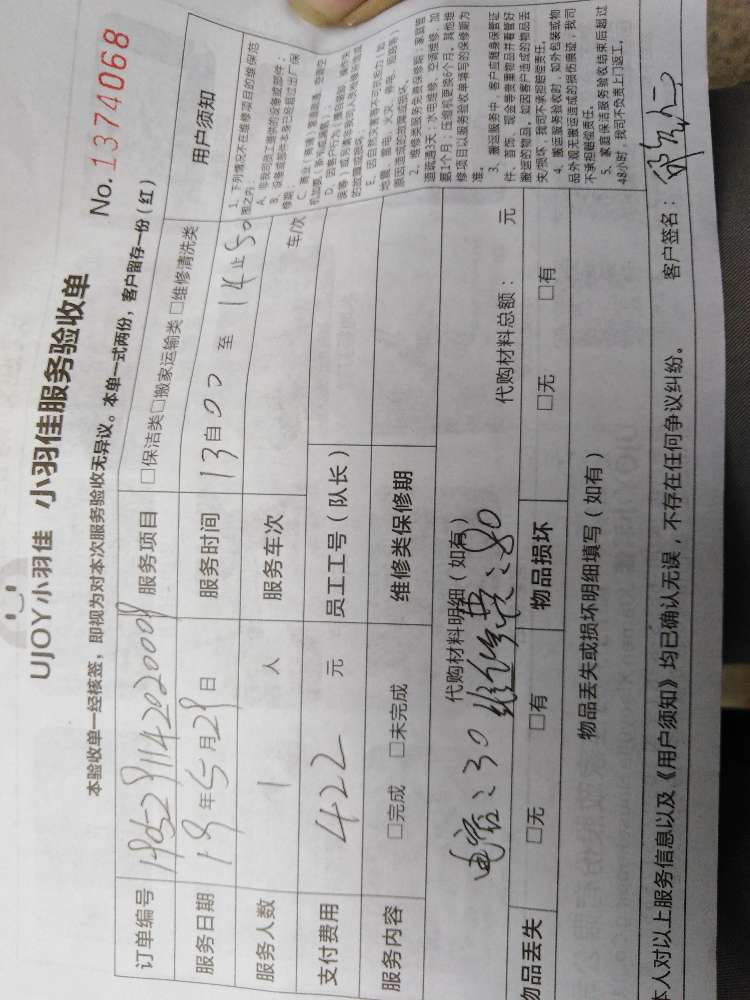 UJOY小羽佳 小羽佳服务验收单
No.1374068
本验收单一经核签，即视为对本次服务验收无异议。本单一式两份，客户留存一份（红）
订单编号 190529114202000 服务项目 □保洁类□搬家运输类 □维修清洗类
服务日期 19年5月29日 服务时间 13自00 至 14止50
服务人数 1 人 服务车次 车/次
支付费用 422 元 员工工号（队长）
服务内容 □完成 □未完成 维修类保修期
用户须知
1、下列情况不在维修项目的维保范
围之内：
A、非我司员工提供的设备或部件；
B、设备或部件本身已经超过出厂保
修期；
3、搬运服务中，客户应随身保管证
件、首饰、现金等贵重物品并看管好
搬运的物品，如因客户造成的物品丢
失/损坏，我司不承担赔偿责任。
4、搬运服务验收时，如外包装或物
品外观无搬运造成的损伤痕迹，我司
不承担赔偿责任。
5、家庭保洁服务验收结束后超过
48小时，我司不负责上门返工。
代购材料明细（如有） 代购材料总额： 元
电容：30 维修费：80
物品丢失 □无 □有 物品损坏 □无 □有
物品丢失或损坏明细填写（如有）
本人对以上服务信息以及《用户须知》均已确认无误，不存在任何争议纠纷。 客户签名：